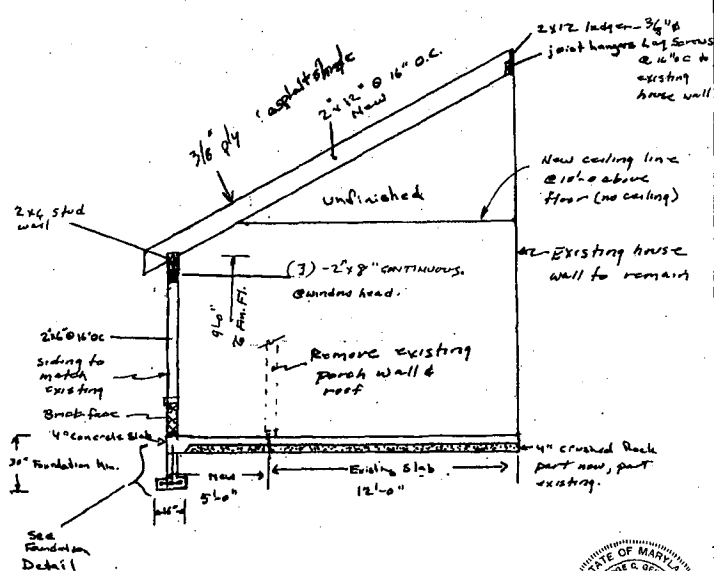 2x12 ledger - 3/8" ø
joist hangers Lag Screws
@ 16" oc to
existing
house wall
3/8" ply asphalt shingle
2"x12" @ 16" O.C.
New
New ceiling line
@ 10'-0 above
floor (no ceiling)
unfinished
2x6 stud
wall
Existing house
wall to remain
(3) - 2"x8" CONTINUOUS.
@window head.
9'-0"
To Fin. Fl.
2"x6" @ 16" OC
Siding to
match
existing
Brick face
4" Concrete Slab
30" Foundation Min.
Remove existing
porch wall &
roof
4" crushed Rock
part new, part
existing.
New
5'-0"
Existing Slab
12'-0"
See
Foundation
Detail
STATE OF MARYLA